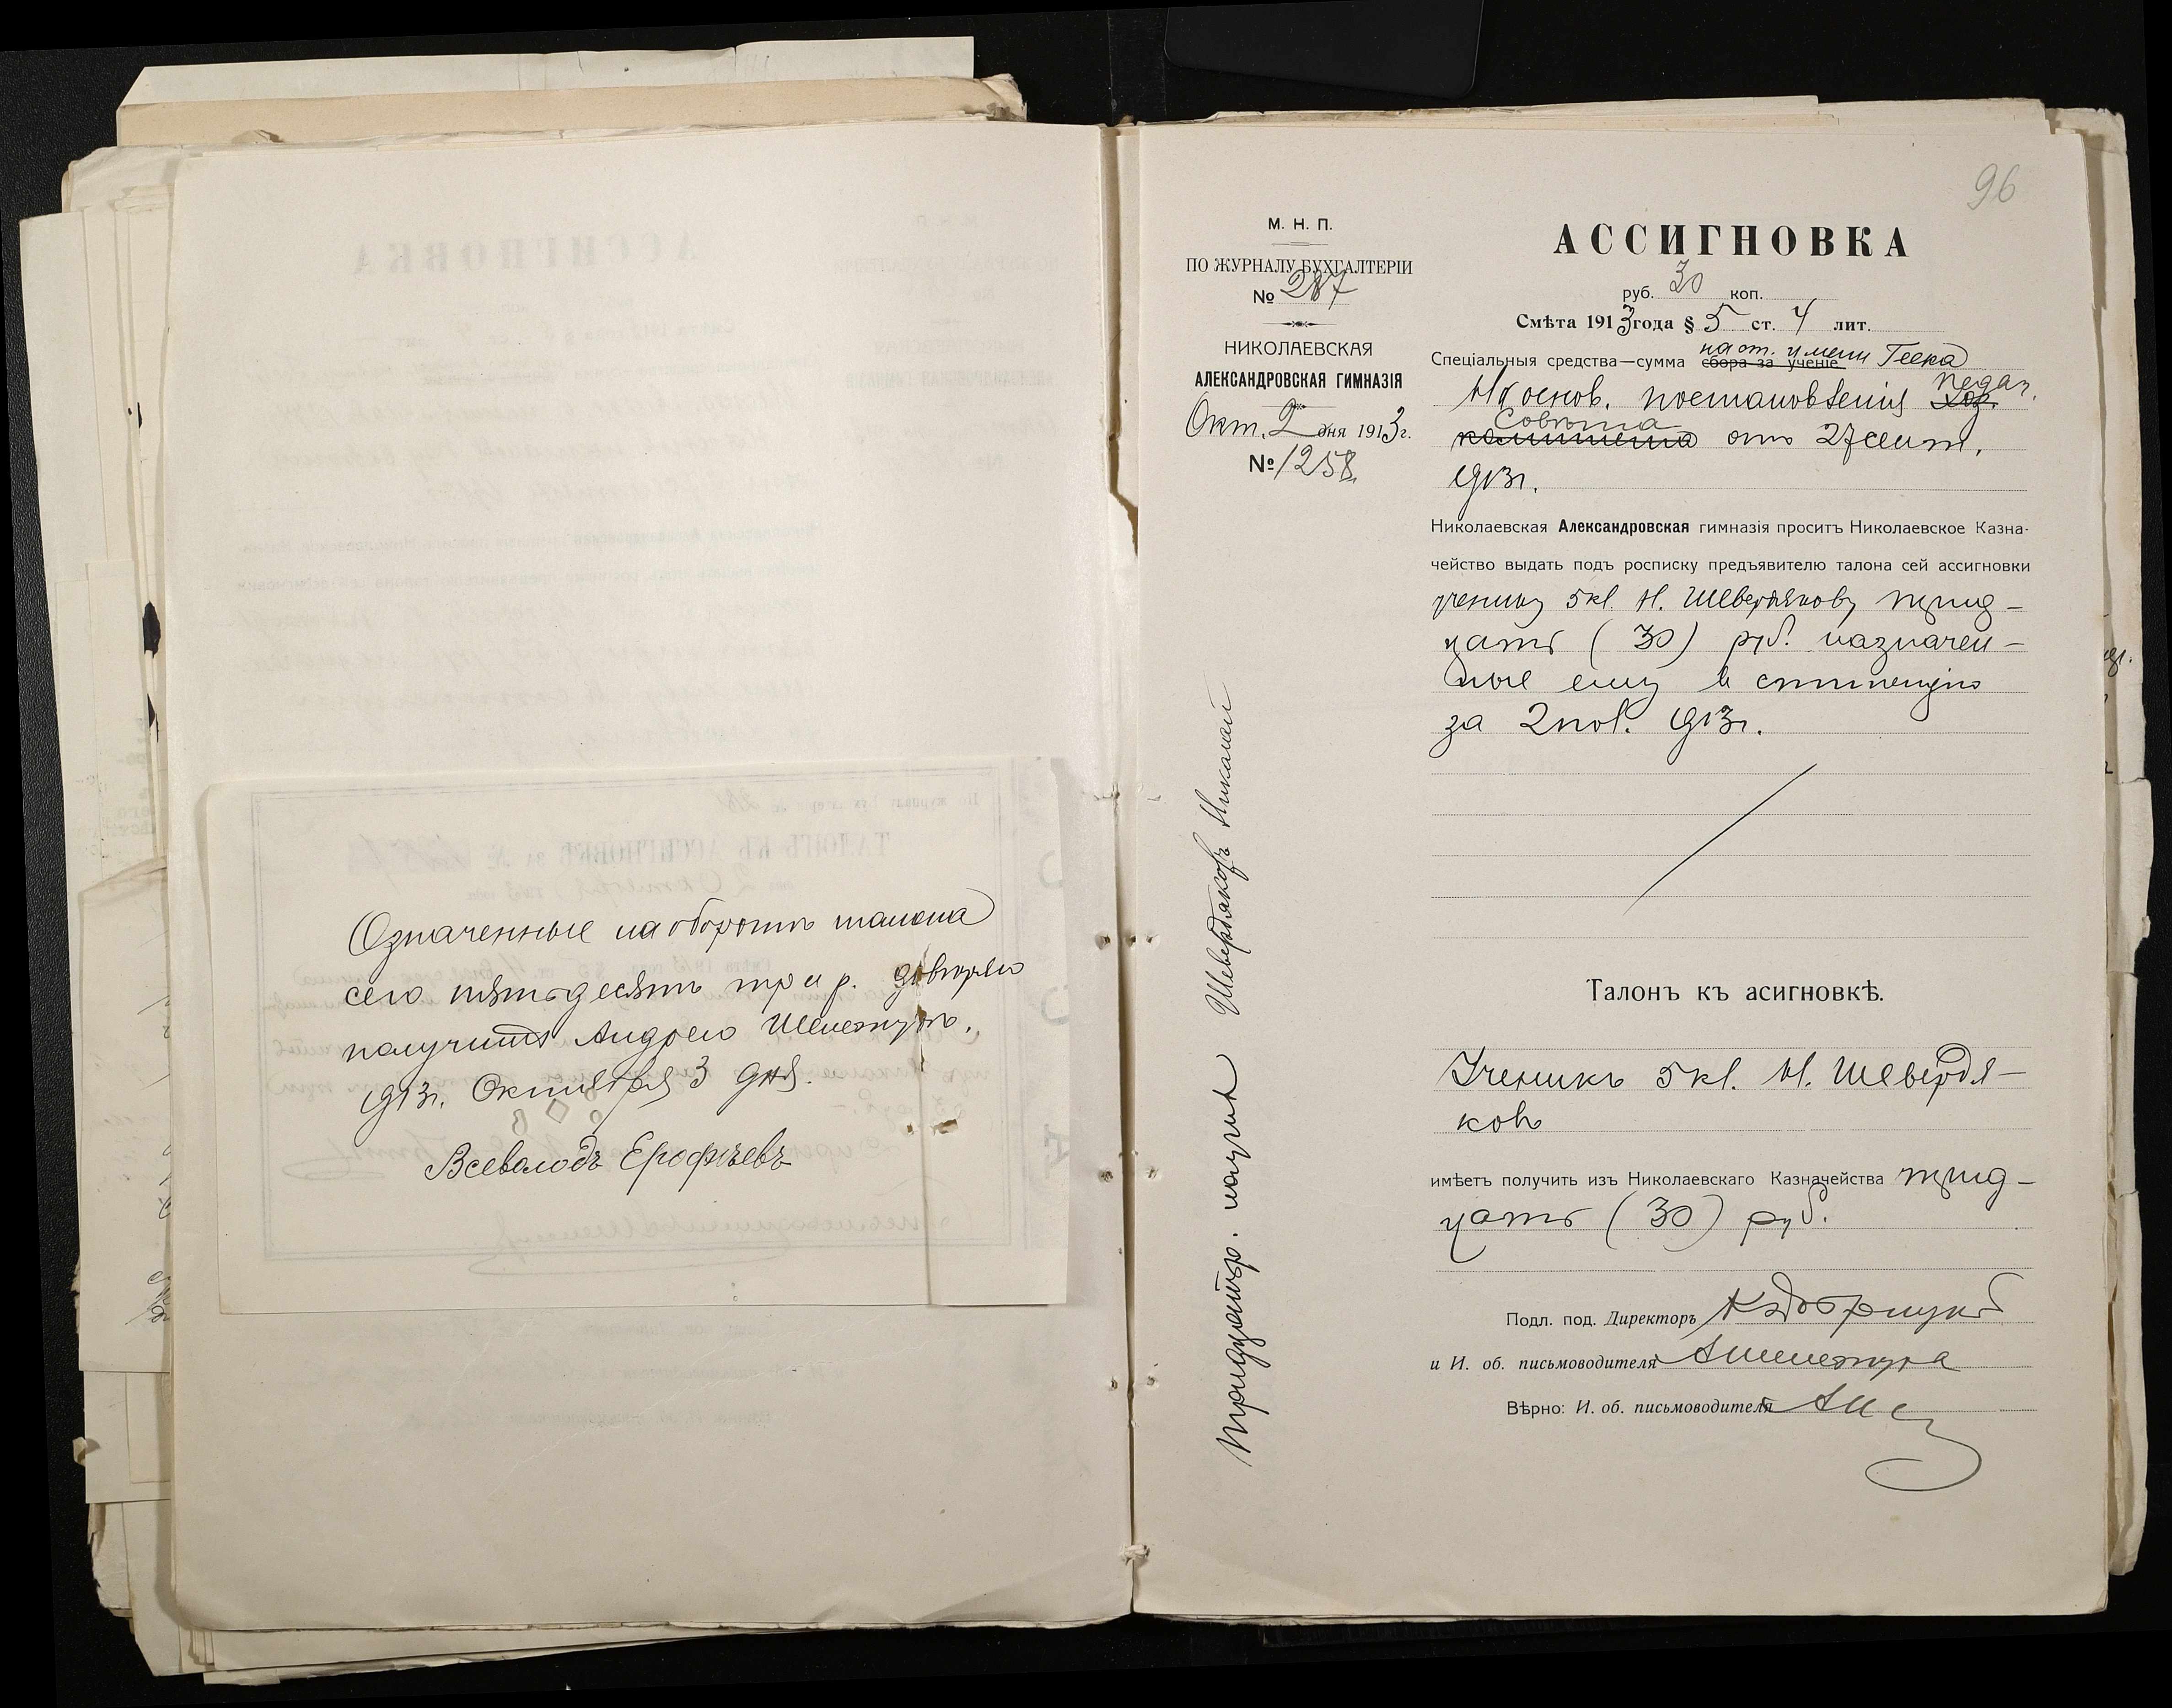 Означенные на оборотѣ талона
сего пятьдесятъ три р. довѣряю
получить Андрею Шелестуръ.
1913г. Октября 3 дня.
Всеволодъ Ерофѣевъ
96
М. Н. П.
ПО ЖУРНАЛУ БУХГАЛТЕРІИ
№ 287
НИКОЛАЕВСКАЯ
АЛЕКСАНДРОВСКАЯ ГИМНАЗІЯ
Окт. 2 дня 1913 г.
№ 1258
Тридцать р. получилъ Шевердяковъ Николай
АССИГНОВКА
руб. 30 коп.
Смѣта 1913 года § 5 ст. 4 лит.
имени Геека
Спеціальныя средства—сумма сбора за ученіе
педаг.
На основ. постановленія Хоз.
Совѣта
комитета отъ 27 сент.
1913г.
Николаевская Александровская гимназія проситъ Николаевское Казна-
чейство выдать подъ росписку предъявителю талона сей ассигновки
ученику 5 кл. Н. Шевердякову трид-
цать (30) руб. назначен-
ные ему въ стипендію
за 2 пол. 1913г.
Талонъ къ асигновкѣ.
Ученикъ 5 кл. Н. Шевердя-
ковъ
имѣетъ получить изъ Николаевскаго Казначейства трид-
цать (30) руб.
Подл. под. Директоръ
и И. об. письмоводителя
Вѣрно: И. об. письмоводителя